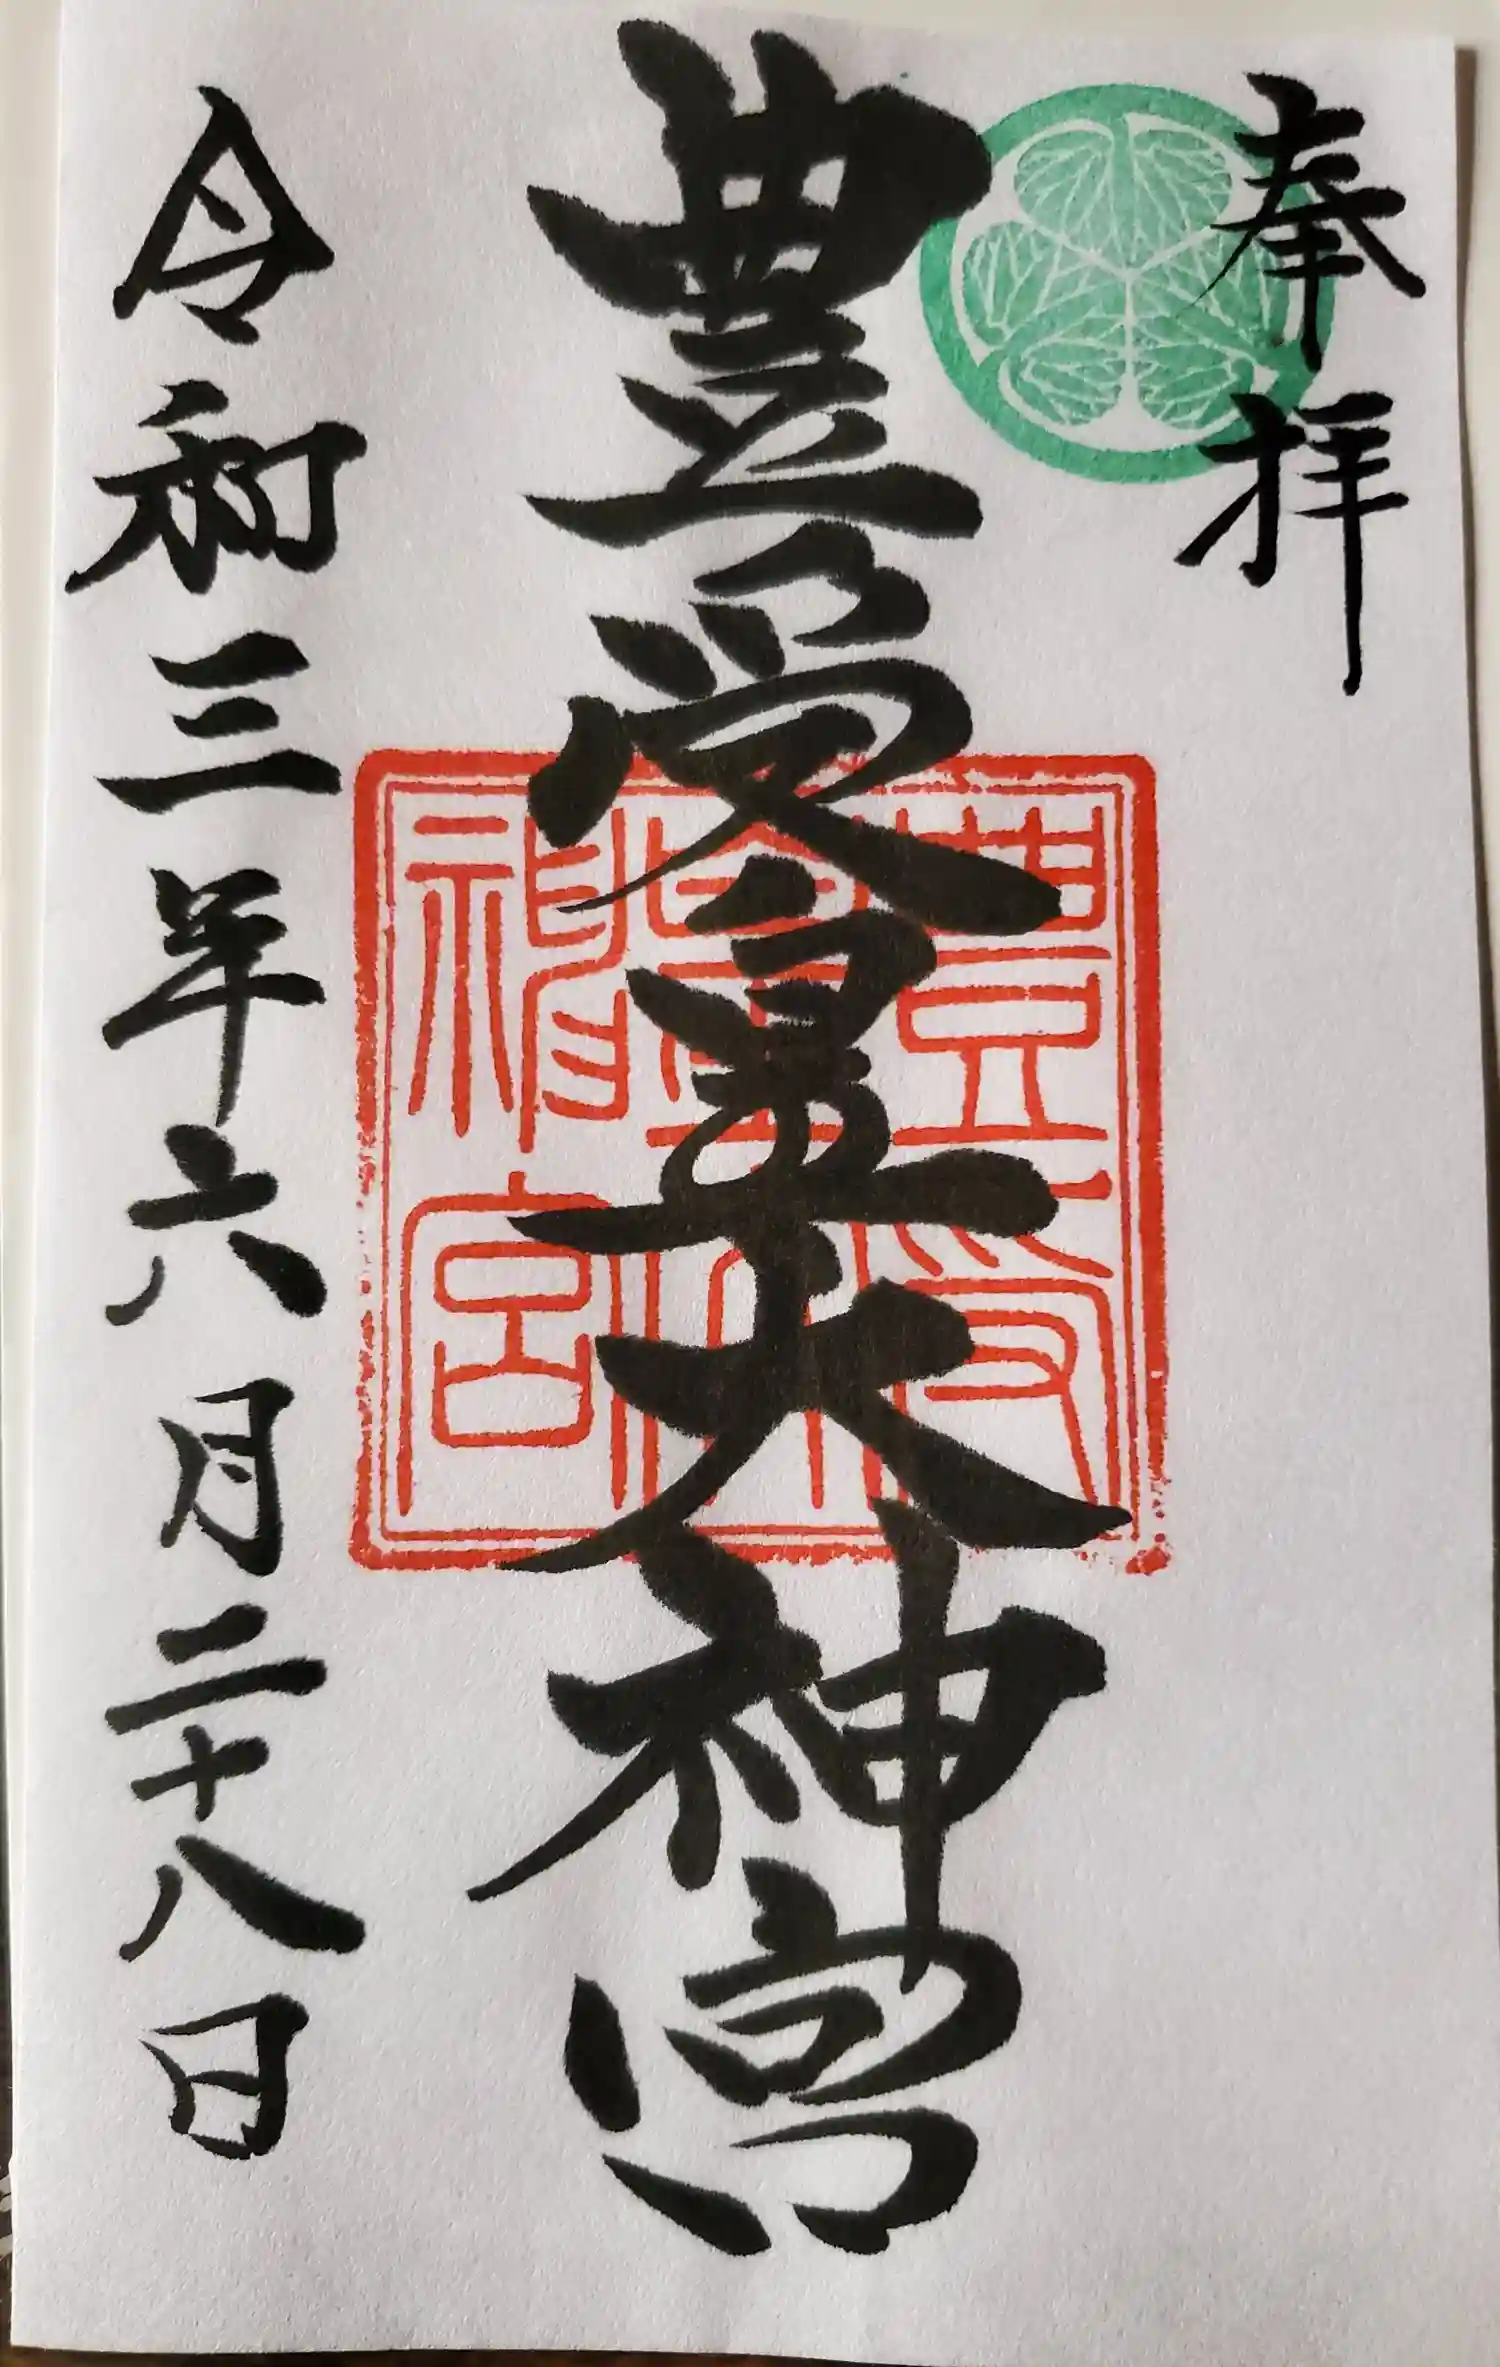 奉拝
豊受皇大神宮
豊受
皇大
神宮
令和三年六月二十八日